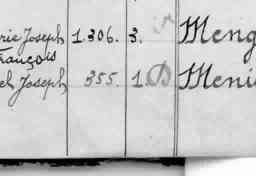 rie Joseph 1.306. 3. Meng
François
el Joseph 355. 1. Meni